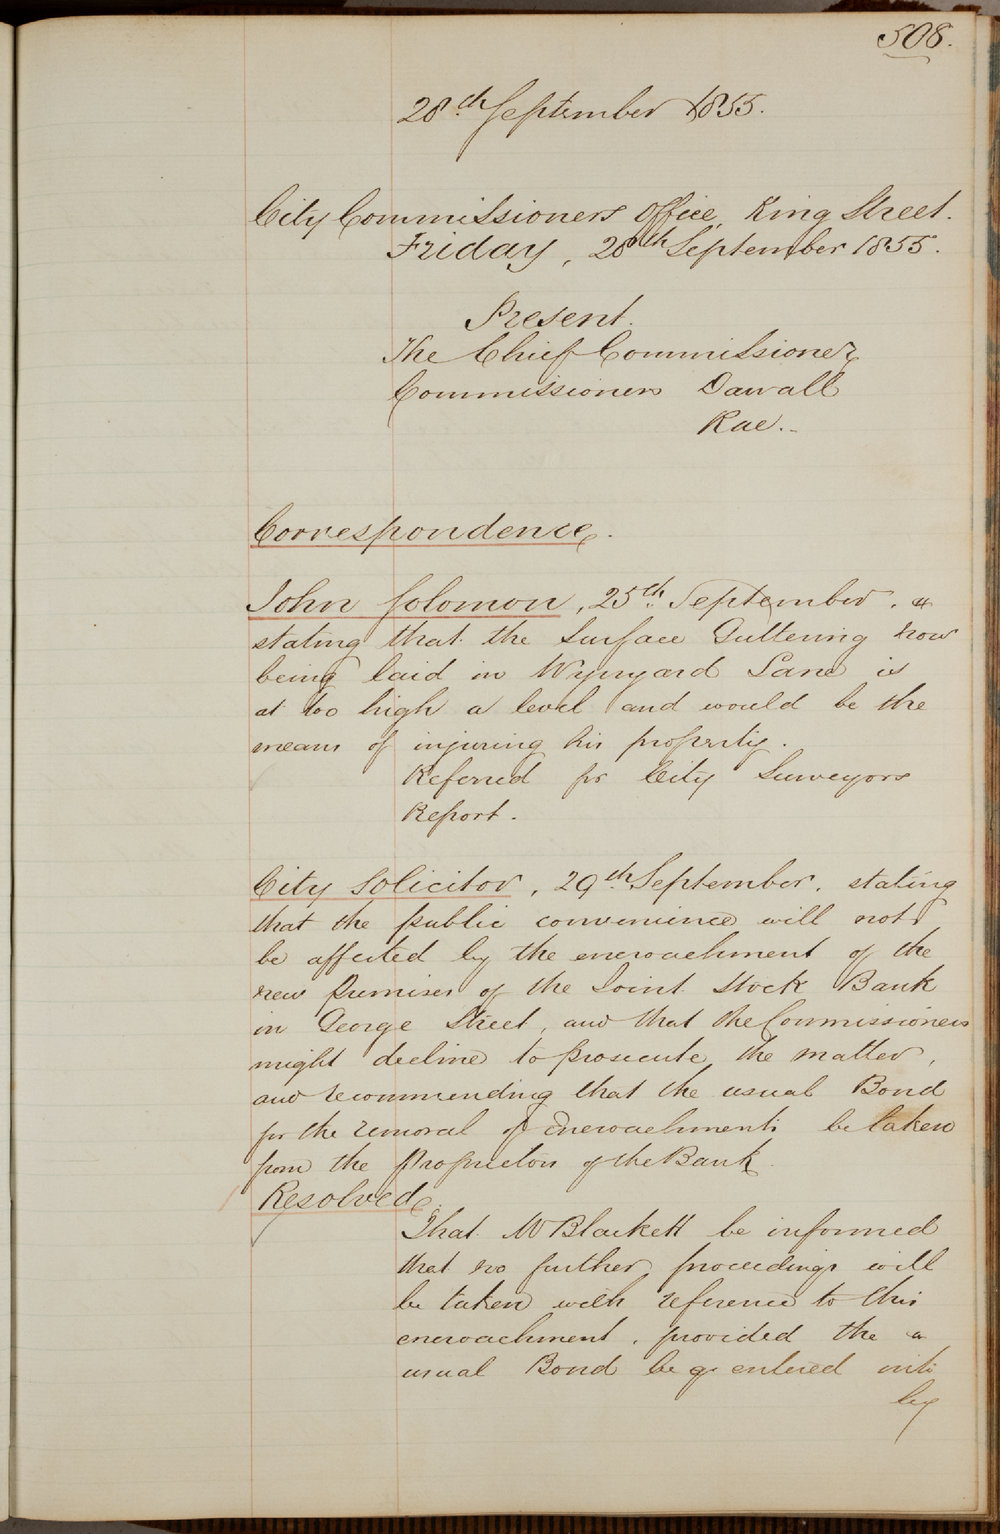 508.
28th September 1855.
City Commissioners Office, King Street.
Friday, 28th September 1855.
Present.
The Chief Commissioner
Commissioners Darvall
Rae.
Correspondence.
John Solomon, 25th September,
stating that the Surface Guttering now
being laid in Wynyard Lane is
at too high a level and would be the
means of injuring his property.
Referred for City Surveyors
Report.
City Solicitor, 29th September, stating
that the public convenience will not
be affected by the encroachment of the
new premises of the Joint Stock Bank
in George Street, and that the Commissioners
might decline to prosecute the matter,
and recommending that the usual Bond
for the removal of Encroachments be taken
from the Proprietors of the Bank.
Resolved
That Mr Blackett be informed
that no further proceedings will
be taken with reference to this
encroachment, provided the
usual Bond be entered into
by